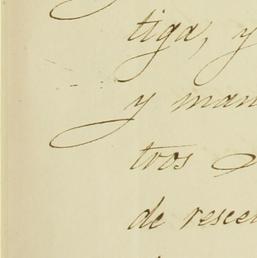 tiga, y
y man
tros
de resce